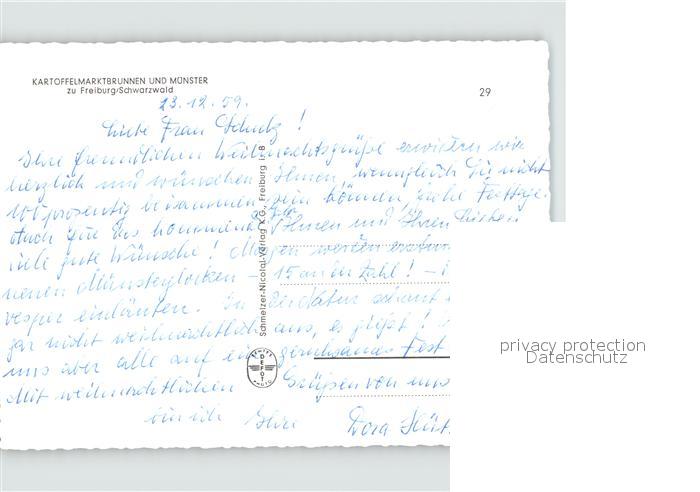 KARTOFFELMARKTBRUNNEN UND MÜNSTER
zu Freiburg/Schwarzwald
29
23.12.59.
Liebe Frau Schulz!
Ihre freundlichen Weihnachtsgrüße erwidern wir
herzlich und wünschen Ihnen, wenngleich Sie nicht
100prozentig beisammen sein können, frohe Festtage.
Auch für das kommende Jahr Ihnen und Ihren Lieben
viele gute Wünsche! Morgen werden erstmals
neuen Münsterglocken - 15 an der Zahl! -
vesper einläuten. In der Natur schaut
gar nicht weihnachtlich aus, es gießt!
uns aber alle auf ein geruhsames Fest
Mit weihnachtlichen Grüßen von uns
bin ich Ihre Dora
Schmelzer-Nicolai-Verlag K.G., Freiburg i. B
DEFOT
privacy protection
Datenschutz